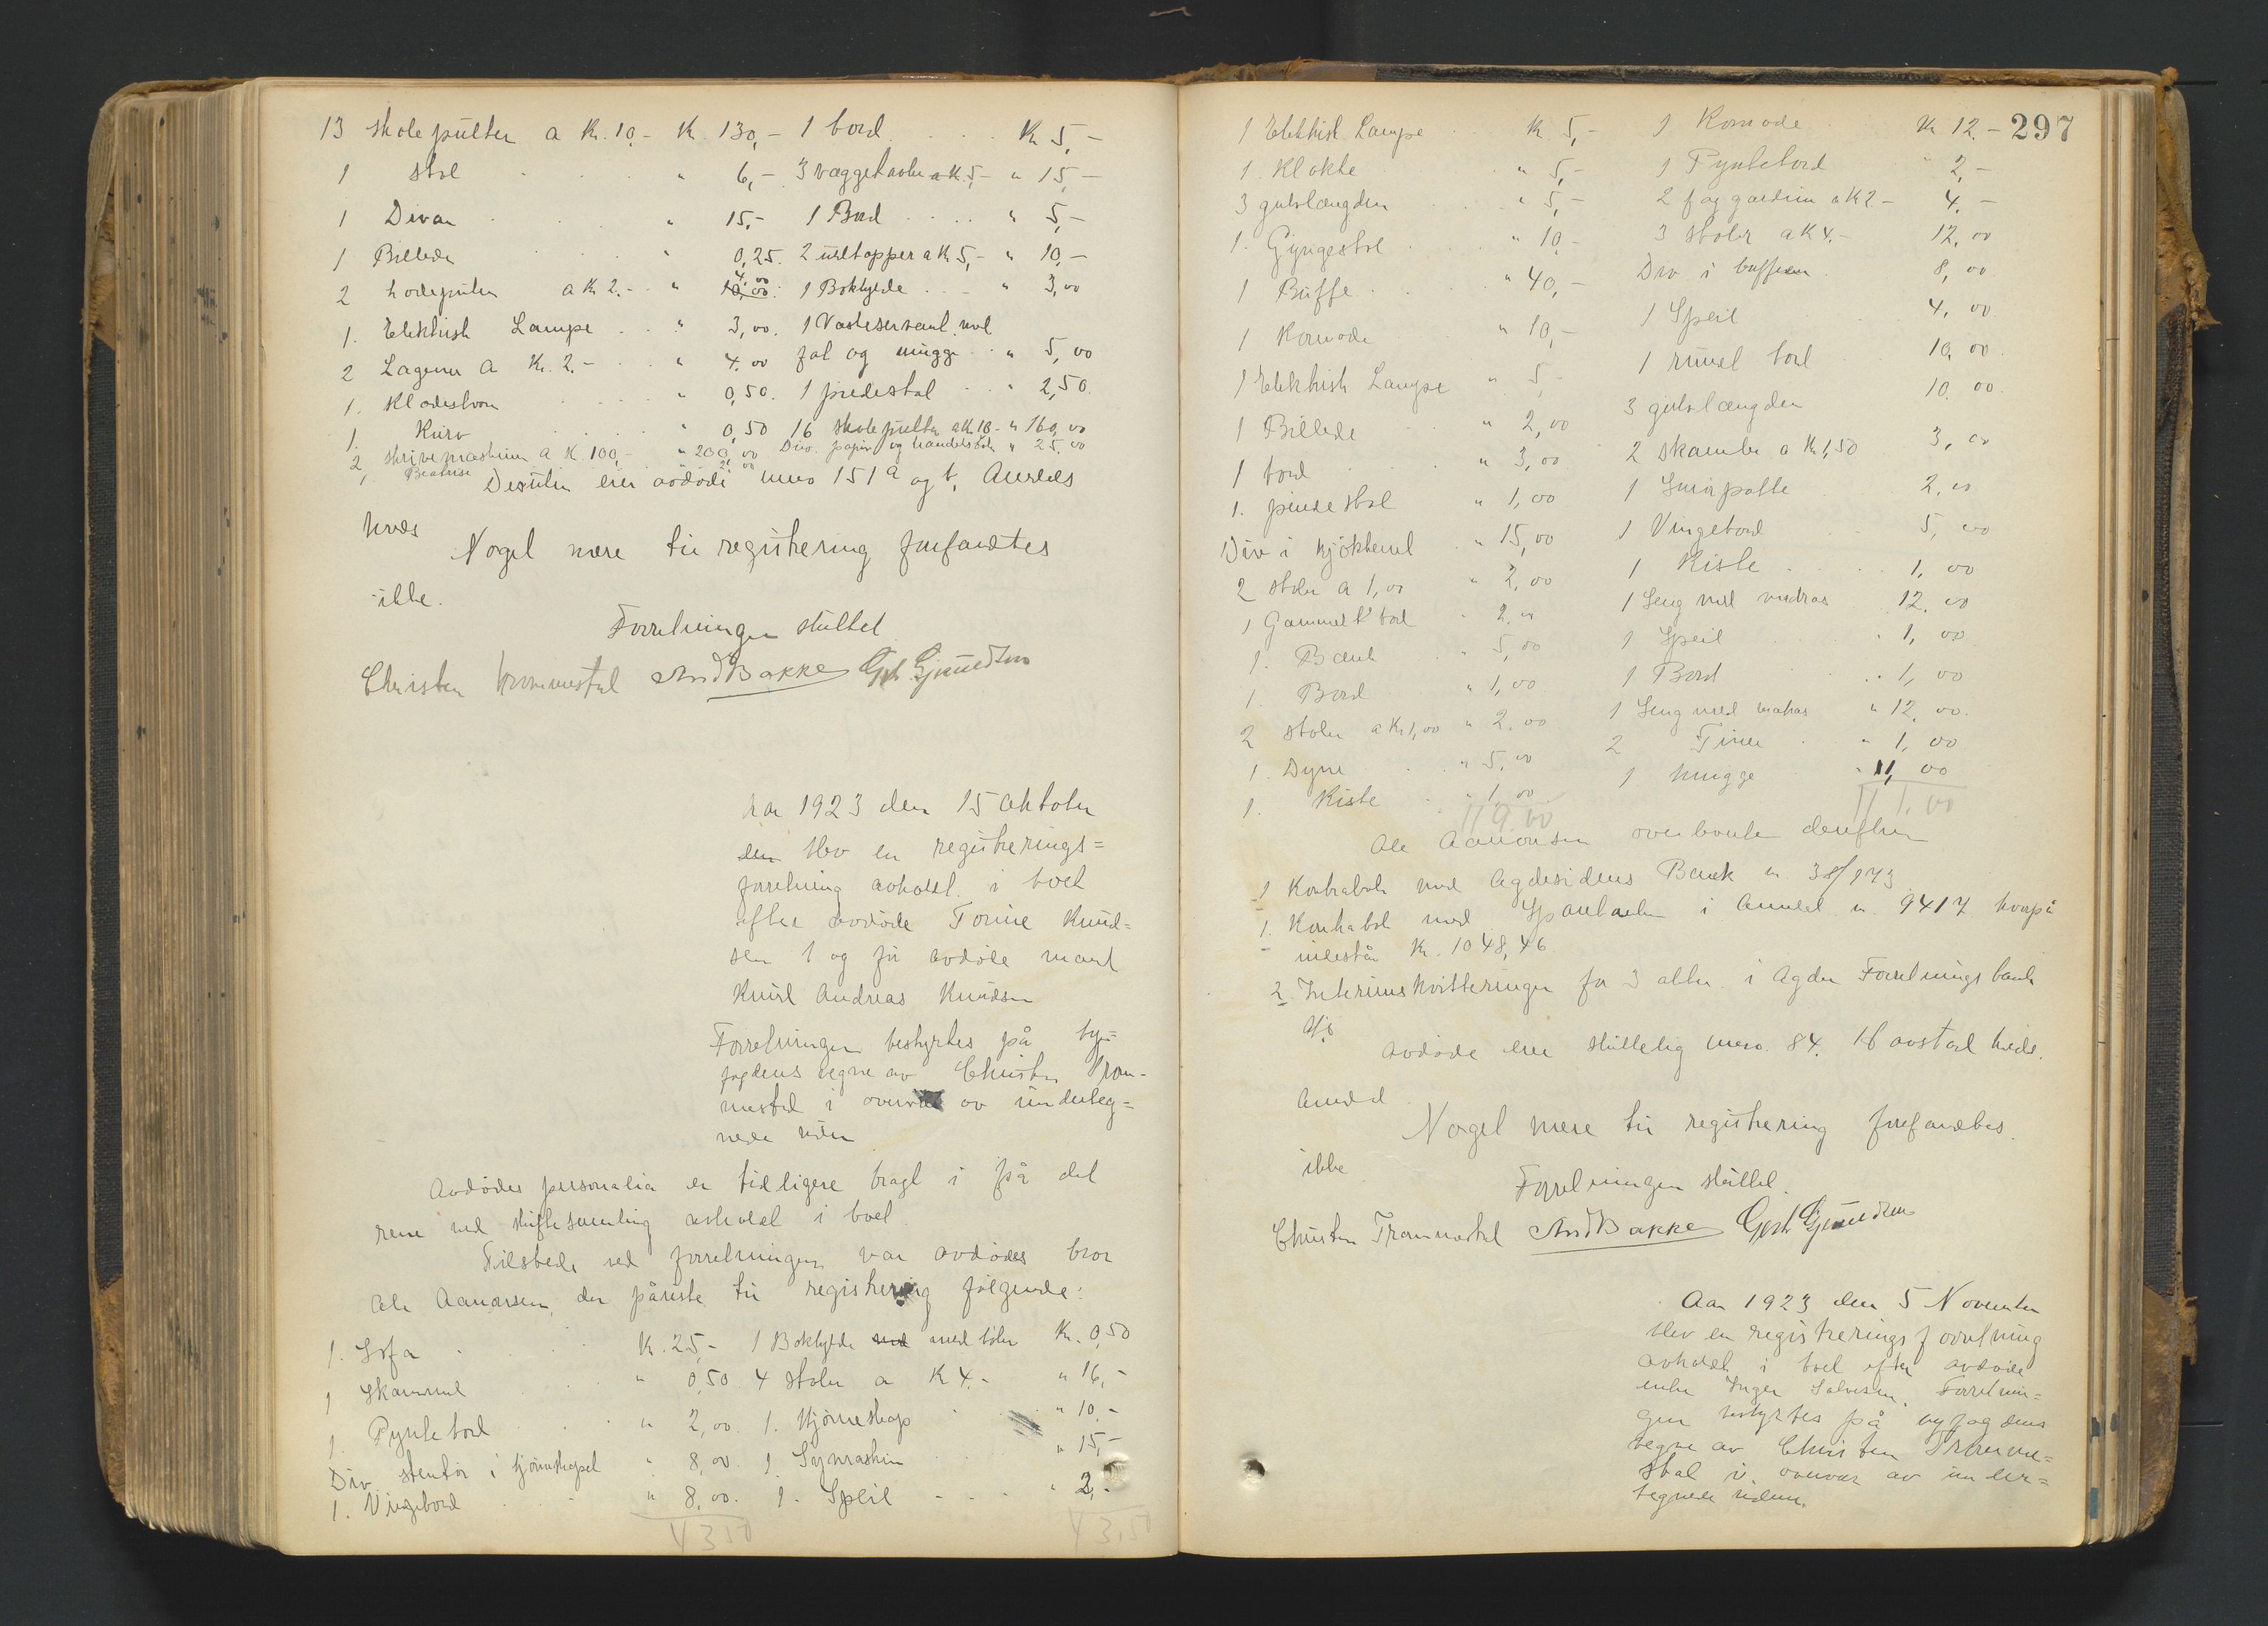 13 skolepulter a Kr. 10,- Kr. 130,- 1 bord Kr 5,-
1 stol " 6,- 3 væggetavler a K. 5,- " 15,-
1 Divan " 15,- 1 Bord " 5,-
1 Billede " 0,25. 2 ulltepper a Kr 5,- " 10,-
2 hodeputer a Kr 2.- " 10,00 4,00 1 Bokhylde " 3,00
1. Elektrisk Lampe " 3,00. 1 Vaskeservant med
2 Lagener a Kr. 2.- " 4.00 fat og mugge " 5,00
1. Klædeskrin " 0,50. 1 pidestal " 2,50.
1. Kurv " 0,50 16 skolepulter a Kr 10- " 160,00
2 skrivemaskiner a K. 100,- " 200,00 Div. papir og handelsbøk " 25,00
1, 2,00
Desuten eier avdøde mno 151a og b, Arendals
hvds
Noget mere til registrering forefandtes
ikke.
Forretningen sluttet
Christen Trommestad And Bakke Gerh Gjmundsen
Aar 1923 den 15 Oktober
den blev en registrerings=
forretning avholdt i boet
efter avdøde Tomine Knud=
sen og før avdøde mand
Knud Andreas Knudsen
Forretningen bestyrtes på by=
fogdens vegne av Christen Trom-
mestad i overvær av underteg=
nede vidner
Avdødes personalia er tidligere bragt i på det
rene ved skiftesamling avholdt i boet.
Tilstede ved forretningen var avdødes bror
Ole Aanonsen, der påviste til registrering følgende:
1. Sofa Kr. 25,- 1 Bokhylde med med bøker Kr. 0,50
1 Skammel " 0,50 4 stoler a K 4.- " 16,-
1. Pyntebord " 2,00. 1. Hjørneskap " 10.-
Div. stentøi i hjørneskapet " 8,00 1 Symaskin " 15,-
1. Vingebord " 8,00. 1. Speil " 2,-
43 50 43,50
297
1 Elektrisk Lampe Kr. 5,- 1 Komode Kr 12.-
1. Klokke " 5,- 1 Pyntebord " 2,-
3 gulvlængder " 5,- 2 fag gardiner a K 2- 4.-
1. Gyngestol " 10,- 3 stoler a K 4.- 12,00
1 Buffe " 40,- Div i buffeen 8,00
1 Komode " 10,- 1 Speil 4,00
1 Elektrisk Lampe " 5,- 1 rundt bord 10,00.
1 Billede " 2,00 3 gulvlængder 10.00.
1 bord " 3,00 2 skamler a Kr 1,50 3,00
1. pindestol " 1,00 1 Smørpotte 2,00
Div i kjøkkenet " 15,00 1 Vingebord 5,00
2 stoler a 1,00 " 2,00 1 Kiste 1,00
1 Gammelt bord " 2,00 1 Seng med madras 12,00
1. Bænk " 5,00 1 Speil " 1,00
1. Bord " 1,00 1 Bord " 1,00
2 stoler a Kr 1,00 " 2,00 1 Seng med matras " 12,00.
1. Dyne " 5,00 2 Tiner " 1,00
1. Kiste " 1,00 1 mugge " 1,00
119,00 111,00
Ole Aanonsen overleverte derefter
1 Kontrabok med Agdesidens Bank nr 38/973
1. Kontrabok med Sparebanken i Arendal nr. 9417 hvorpå
indestår Kr. 1048,46.
2. Interimskvitteringer for 3 aktier i Agder Forretningsbank
A/S
Avdøde eier skillelig mno. 84. Hovstad hvds.
Arendal
Noget mere til registrering forefandtes.
ikke
Forretningen sluttet.
Christen Trommestad And Bakke Gerh Gjmundsen
Aar 1923 den 5 November
blev en registreringsforretning
avholdt i boet efter avdøde
enke Inger Salvesen. Forretnin=
gen bestyrtes på byfogdens
vegne av Christen Tromme=
stad i overvær av under=
tegnede vidner.